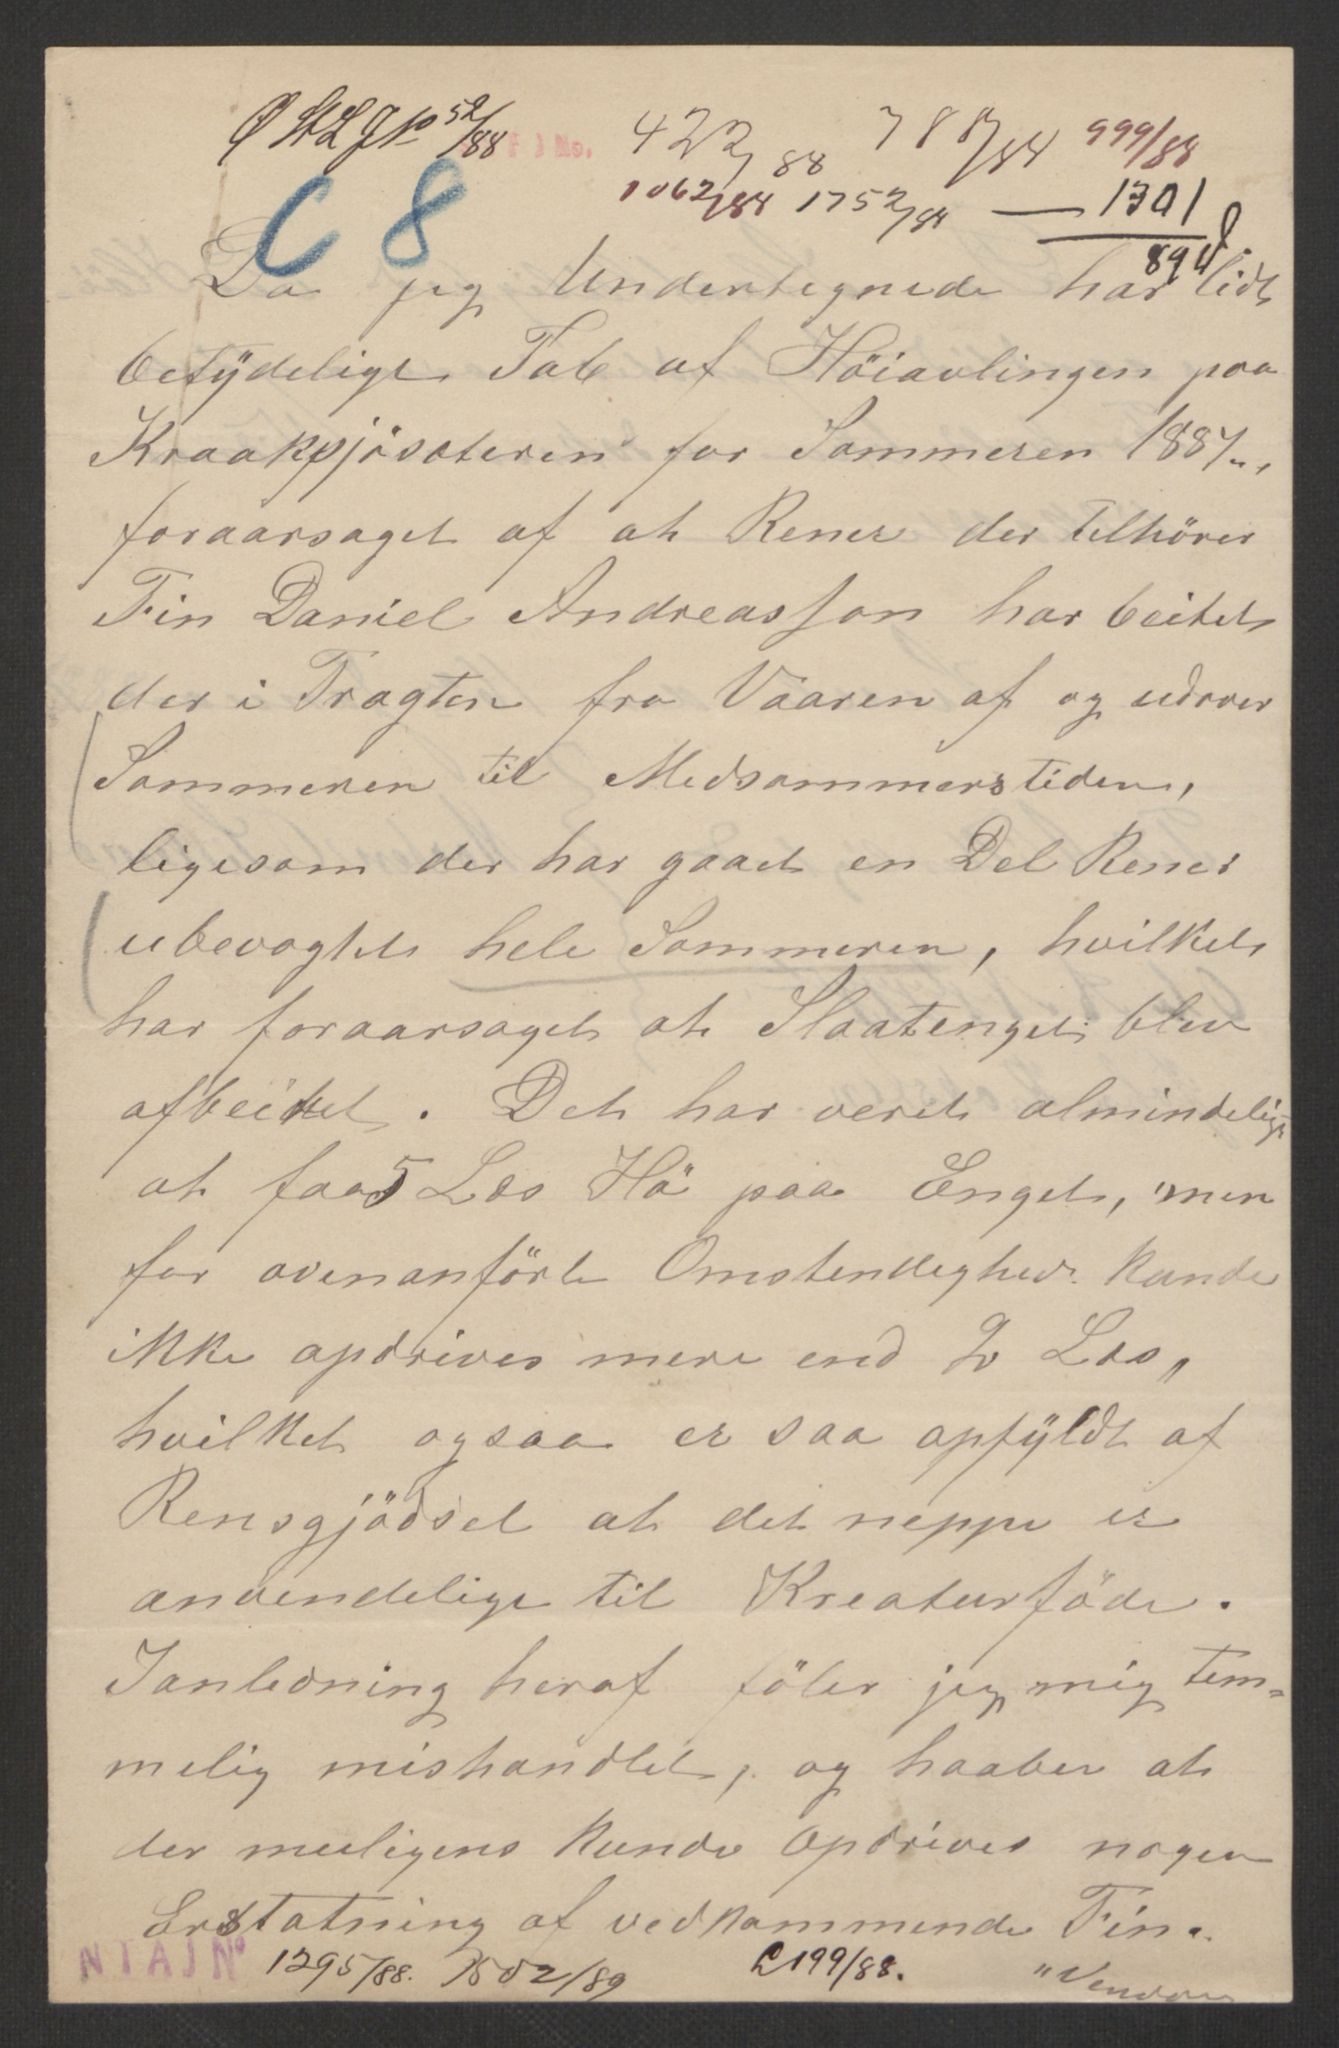 52/88
422/88 787/84 999/88
1062/88 1752/88 — 1301
C 8
894
Da jeg Undertegnede har lidt
betÿdeligt Tab af Höiavlingen paa
Kraakfjösæteren for Sommeren 1887,
foraarsaget af at Rener der tilhörer
Fin Daniel Andreasson har beitet
der i Tragten fra Vaaren af og udover
Sommeren til Medsommerstiden,
ligesom der har gaaet en Del Rener
ubevogtet hele Sommeren, hvilket
har foraarsaget at Slaatenget blev
afbeitet. Det har veret almindeligt
at faa 5 Les Hö paa Enget, men
for ovenanförte Omstendighed kunde
ikke opdrives mere end 2 Les,
hvilket ogsaa er saa opfÿldt af
Rensgjödsel at det neppe er
anvendeligt til Kreaturföde.
Ianledning heraf föler jeg mig tem=
melig mishandlet, og haaber at
der muligens kunde opdrives nogen
Erstatning af vedkommende Fin.
NTAJNo 1295/88. 1502/89 L199/88. "Vendes